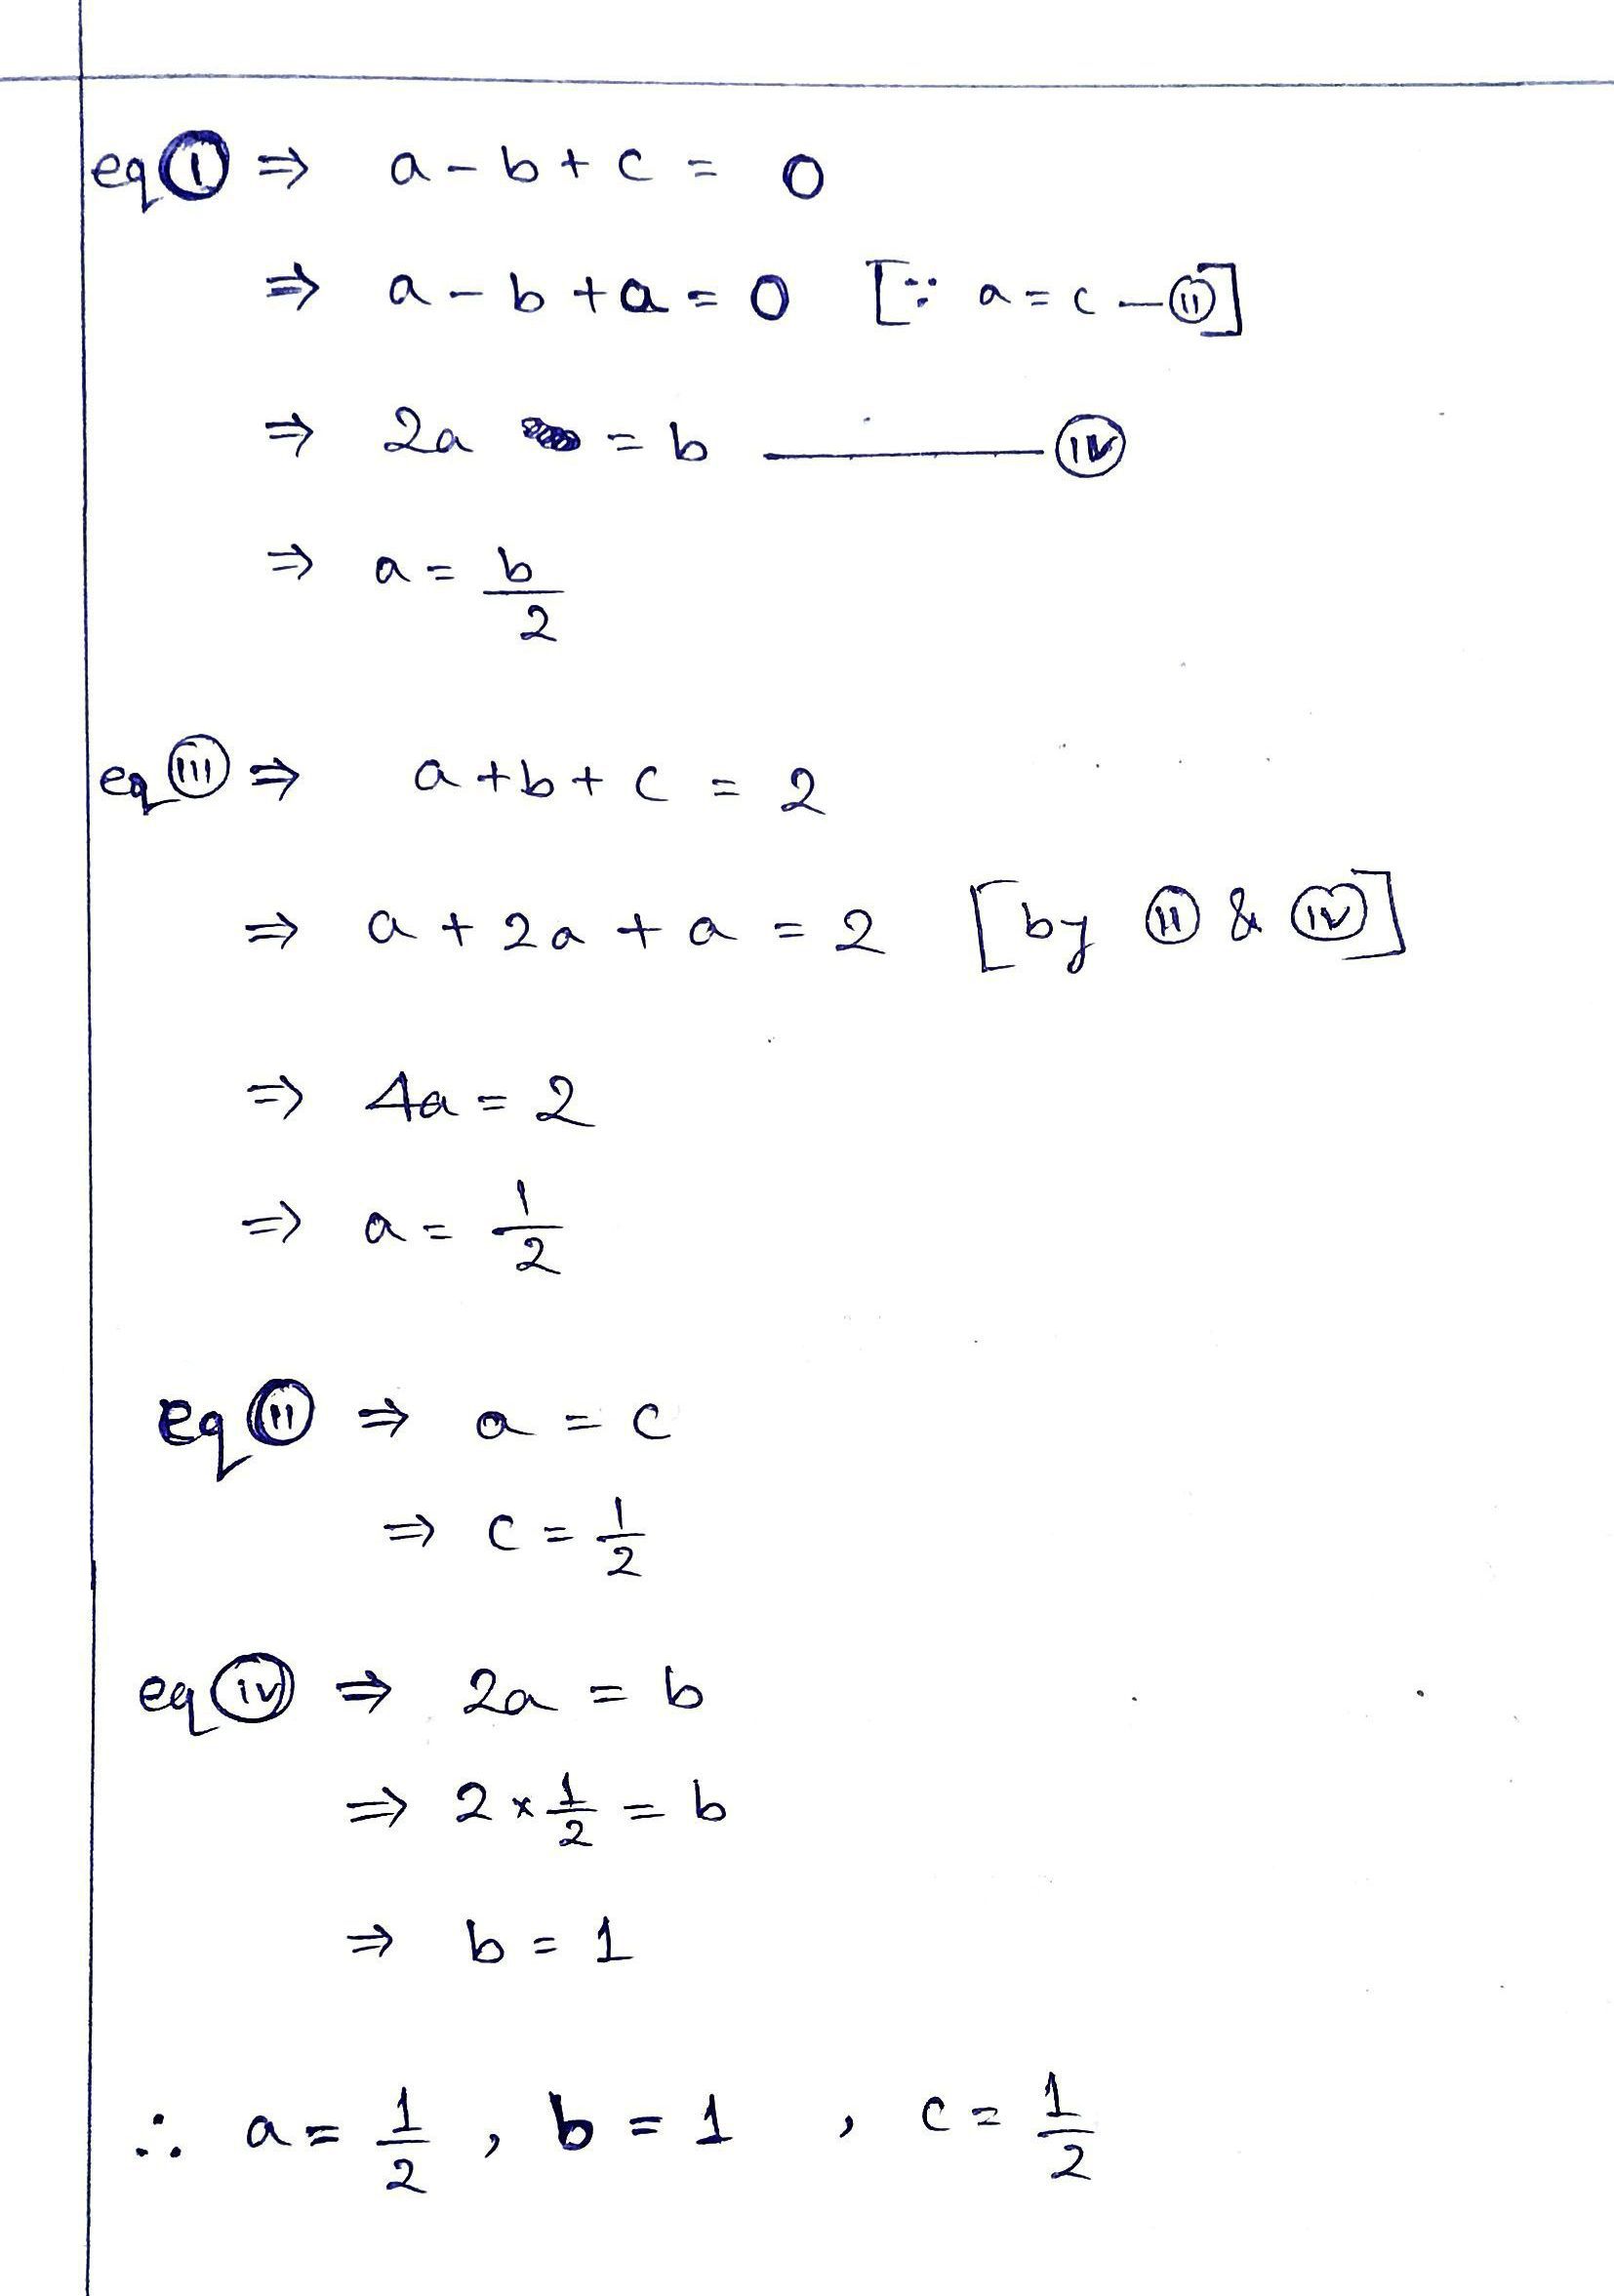 eq (I) ⇒ a - b + c = 0
⇒ a - b + a = 0 [∵ a = c — (II)]
⇒ 2a = b ——— (IV)
⇒ a = b/2
eq (III) ⇒ a + b + c = 2
⇒ a + 2a + a = 2 [by (II) & (IV)]
⇒ 4a = 2
⇒ a = 1/2
eq (II) ⇒ a = c
⇒ c = 1/2
eq (IV) ⇒ 2a = b
⇒ 2 × 1/2 = b
⇒ b = 1
∴ a = 1/2 , b = 1 , c = 1/2